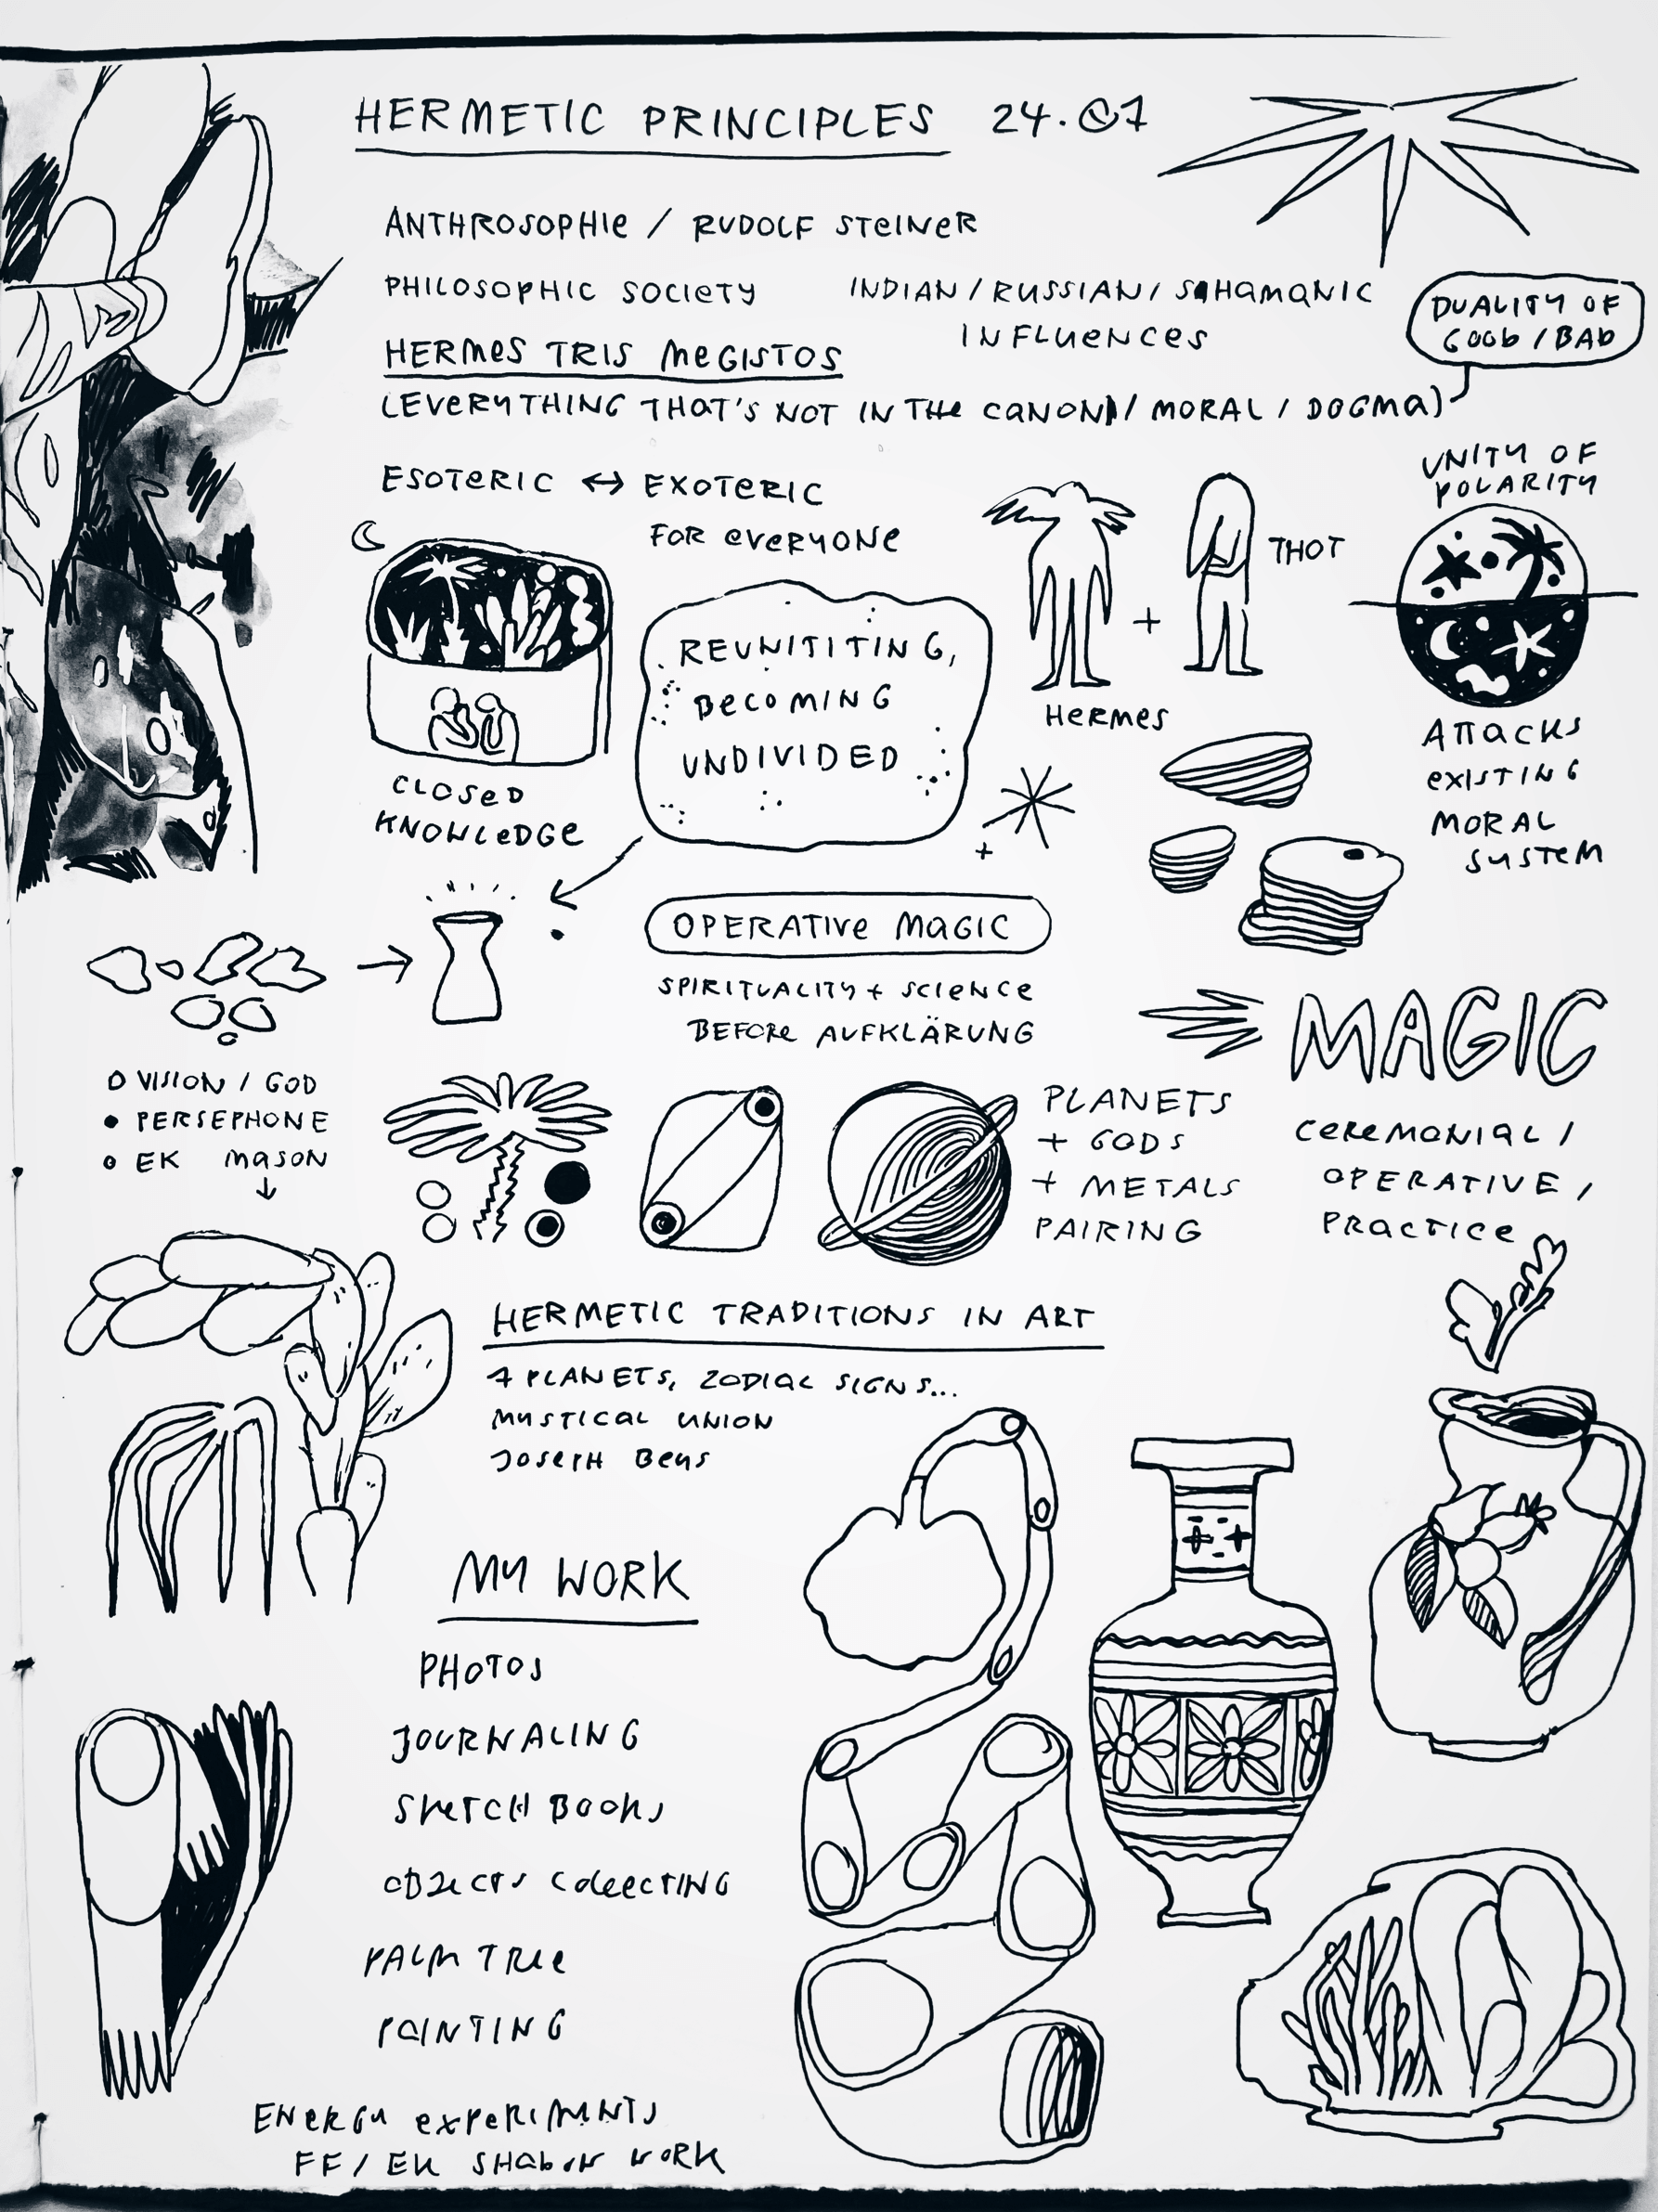 HERMETIC PRINCIPLES 24.07
ANTHROSOPHIE / RUDOLF STEINER
PHILOSOPHIC SOCIETY
INDIAN / RUSSIAN / SHAMANIC
INFLUENCES
DUALITY OF
GOOD / BAD
HERMES TRIS MEGISTOS
(EVERYTHING THAT'S NOT IN THE CANON / MORAL / DOGMA)
ESOTERIC ↔ EXOTERIC
FOR EVERYONE
UNITY OF
POLARITY
THOT
+
HERMES
REUNITITING,
BECOMING
UNDIVIDED
CLOSED
KNOWLEDGE
ATTACKS
EXISTING
MORAL
SYSTEM
+
OPERATIVE MAGIC
SPIRITUALITY + SCIENCE
BEFORE AUFKLÄRUNG
MAGIC
CEREMONIAL /
OPERATIVE /
PRACTICE
VISION / GOD
PERSEPHONE
EK MASON
PLANETS
+ GODS
+ METALS
PAIRING
HERMETIC TRADITIONS IN ART
7 PLANETS, ZODIAC SIGNS...
MYSTICAL UNION
JOSEPH BEUYS
MY WORK
PHOTOS
JOURNALING
SKETCH BOOKS
OBJECTS COLLECTING
PALM TREE
PAINTING
ENERGY EXPERIMENTS
FF / EK SHADOW WORK